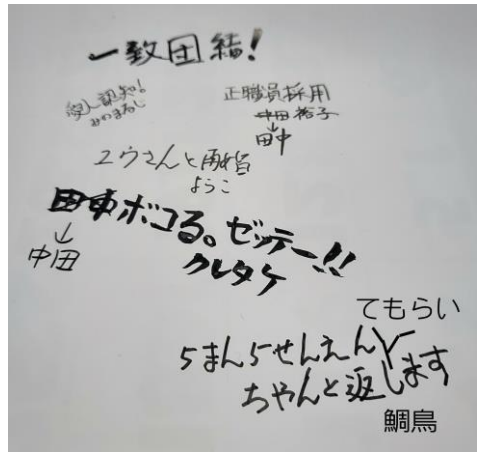 一致団結!
殺人認知!
みのまるじ
正職員採用
中田 裕子
↓
田中
ユウさんと再婚
ようこ
田中ボコる。ゼッテー!!
↓
中田
クレタケ
てもらい
5まん5せんえん
ちゃんと返します
鯛鳥